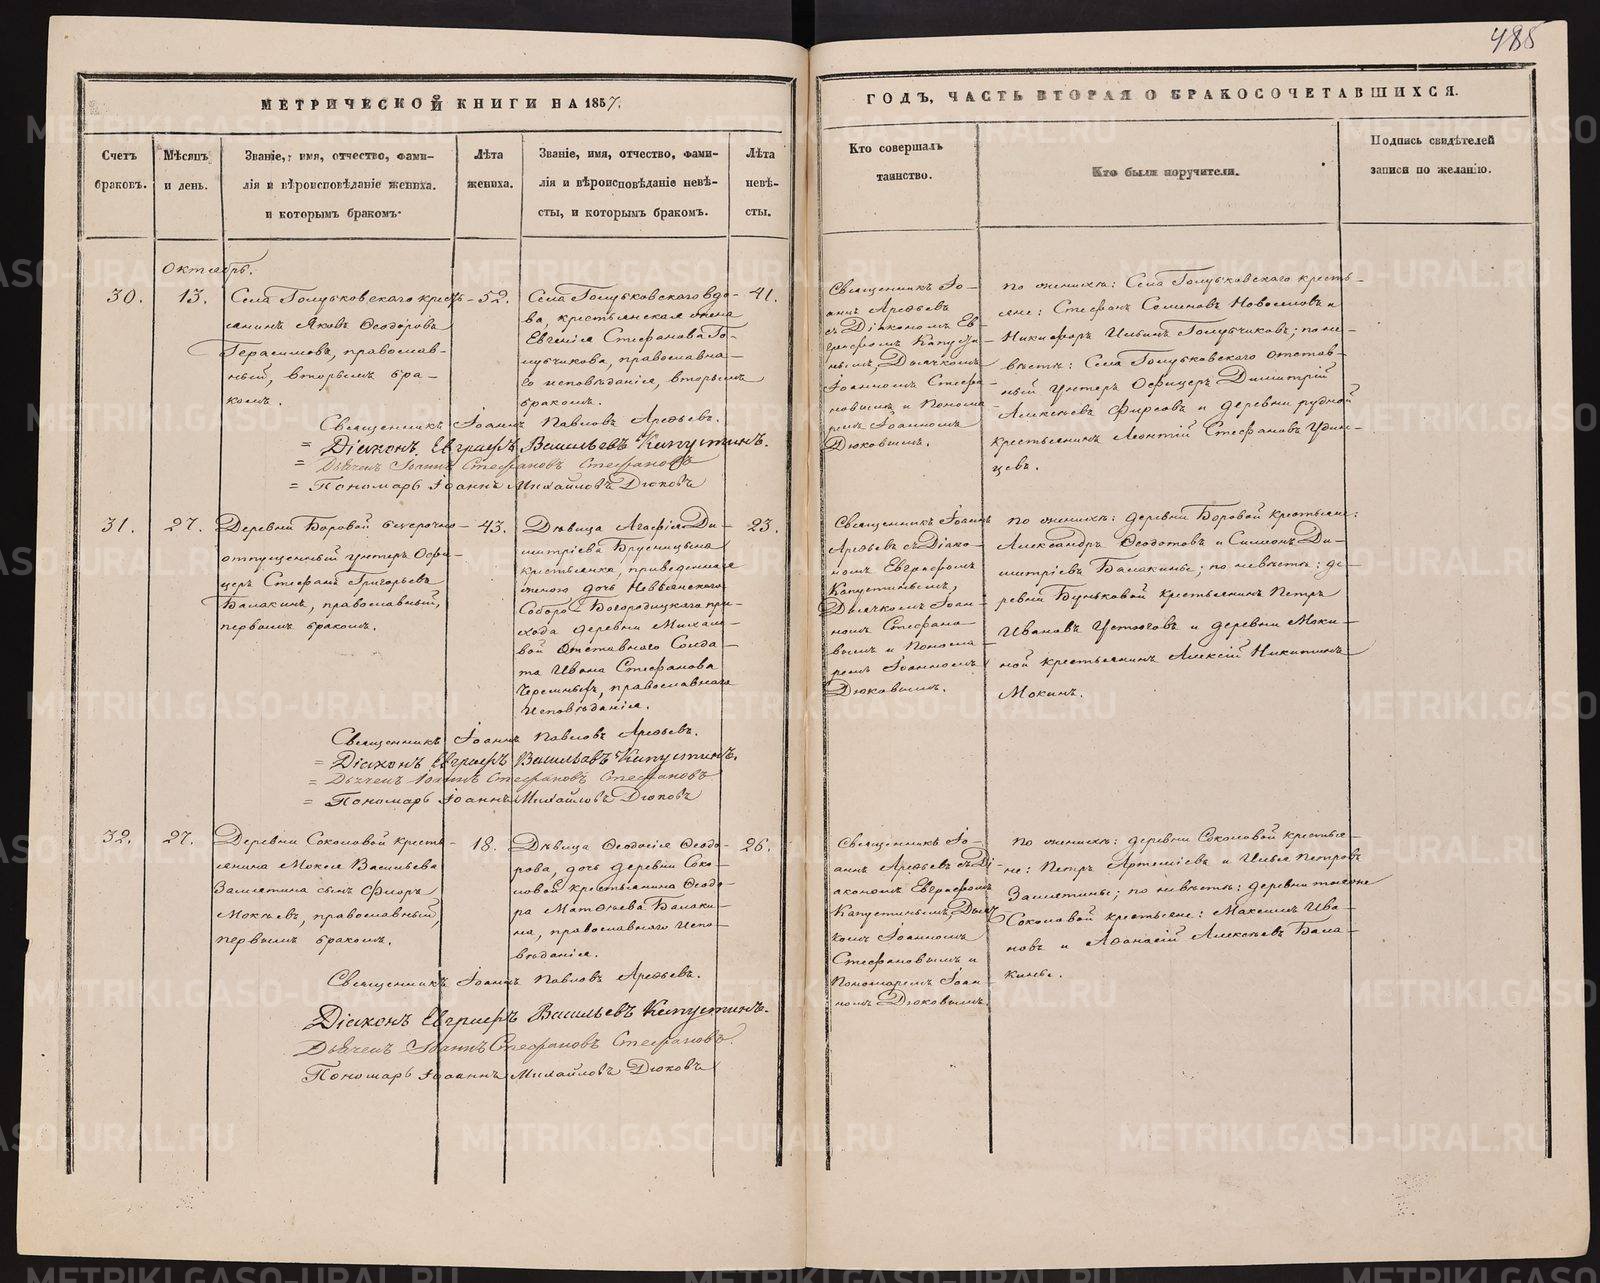 485
МЕТРИЧЕСКОЙ КНИГИ НА 1857.
ГОДЪ, ЧАСТЬ ВТОРАЯ О БРАКОСОЧЕТАВШИХСЯ.
Счетъ
браковъ.
Мѣсяцъ
и день.
Званіе, имя, отчество, фами-
лія и вѣроисповѣданіе жениха.
и которымъ бракомъ.
Лѣта
жениха.
Званіе, имя, отчество, фами-
лія и вѣроисповѣданіе невѣ-
сты, и которымъ бракомъ.
Лѣта
невѣ-
сты.
Кто совершалъ
таинство.
Кто были поручители.
Подпись свидѣтелей
записи по желанію.
Октябрь.
30.
13.
Села Голубковскаго кресть-
янинъ Яковъ Ѳеодоровъ
Герасимовъ, православ-
ный, вторымъ бра-
комъ.
52.
Села Голубковскаго вдо-
ва, крестьянская жена
Евгенія Стефанова Го-
лубчикова, православна-
го исповѣданія, вторымъ
бракомъ.
41.
Священникъ Іо-
аннъ Арефьевъ
съ Діакономъ Ев-
графомъ Капусти-
нымъ, Дьячкомъ
Іоанномъ Стефа-
новымъ и Понома-
ремъ Іоанномъ
Дюковымъ.
По женихѣ: Села Голубковскаго кресть-
яне: Стефанъ Семеновъ Новоселовъ и
Никифоръ Ильинъ Голубчиковъ; по не-
вѣстѣ: Села Голубковскаго отстав-
ный Унтеръ Офицеръ Димитрій
Алексѣевъ Фирсовъ и деревни Рудной
крестьянинъ Леонтій Стефановъ Удин-
цевъ.
Священникъ Іоаннъ Павловъ Арефьевъ.
= Діаконъ Евграфъ Васильевъ Капустинъ.
= Дьячекъ Іоаннъ Стефановъ Стефановъ
= Пономарь Іоаннъ Михайловъ Дюковъ
31.
27.
Деревни Боровой безсрочно-
отпущенный унтеръ Офи-
церъ Стефанъ Григорьевъ
Балакинъ, православный,
первымъ бракомъ.
43.
Дѣвица Агафія Ди-
митріева Брусницына
крестьянка, приведенная
женою дочь Невьянскаго
Собора Богородицкаго при-
хода деревни
Отставнаго Солда-
та Ивана Стефанова
православнаго
исповѣданія.
23.
Священникъ Іоаннъ
Арефьевъ съ Діако-
номъ Евграфомъ
Капустинымъ,
Дьячкомъ Іоан-
номъ Стефано-
вымъ и Понома-
ремъ Іоанномъ
Дюковымъ.
По женихѣ: деревни Боровой крестьяне:
Александръ Ѳеодотовъ и Симеонъ Ди-
митріевъ Балакины; по невѣстѣ: де-
ревни Буньковой крестьянинъ Петръ
Ивановъ Устюговъ и деревни Моки-
ной крестьянинъ Алексій Никитинъ
Мокинъ.
Священникъ Іоаннъ Павловъ Арефьевъ.
= Діаконъ Евграфъ Васильевъ Капустинъ.
= Дьячекъ Іоаннъ Стефановъ Стефановъ
= Пономарь Іоаннъ Михайловъ Дюковъ
32.
27.
Деревни Соколовой кресть-
янина Мокея Васильева
Замятина сынъ Флоръ
Мокѣевъ, православный,
первымъ бракомъ.
18.
Дѣвица Ѳеодосія Ѳеодо-
рова, дочь деревни Соко-
ловой крестьянина Ѳеодо-
ра Матѳѣева Балаки-
на, православнаго испо-
вѣданія.
26.
Священникъ Іо-
аннъ Арефьевъ съ Ді-
акономъ Евграфомъ
Капустинымъ, Дьяч-
комъ Іоанномъ
Стефановымъ и
Пономаремъ Іоан-
номъ Дюковымъ.
По женихѣ: деревни Соколовой крестья-
не: Петръ Артеміевъ и Илья Петровъ
Замятины; по невѣстѣ: деревни тоже
Соколовой крестьяне: Максимъ Ива-
новъ и Афанасій Алексѣевъ Бала-
кины.
Священникъ Іоаннъ Павловъ Арефьевъ.
Діаконъ Евграфъ Васильевъ Капустинъ.
Дьячекъ Іоаннъ Стефановъ Стефановъ.
Пономарь Іоаннъ Михайловъ Дюковъ
METRIKI.GASO-URAL.RU